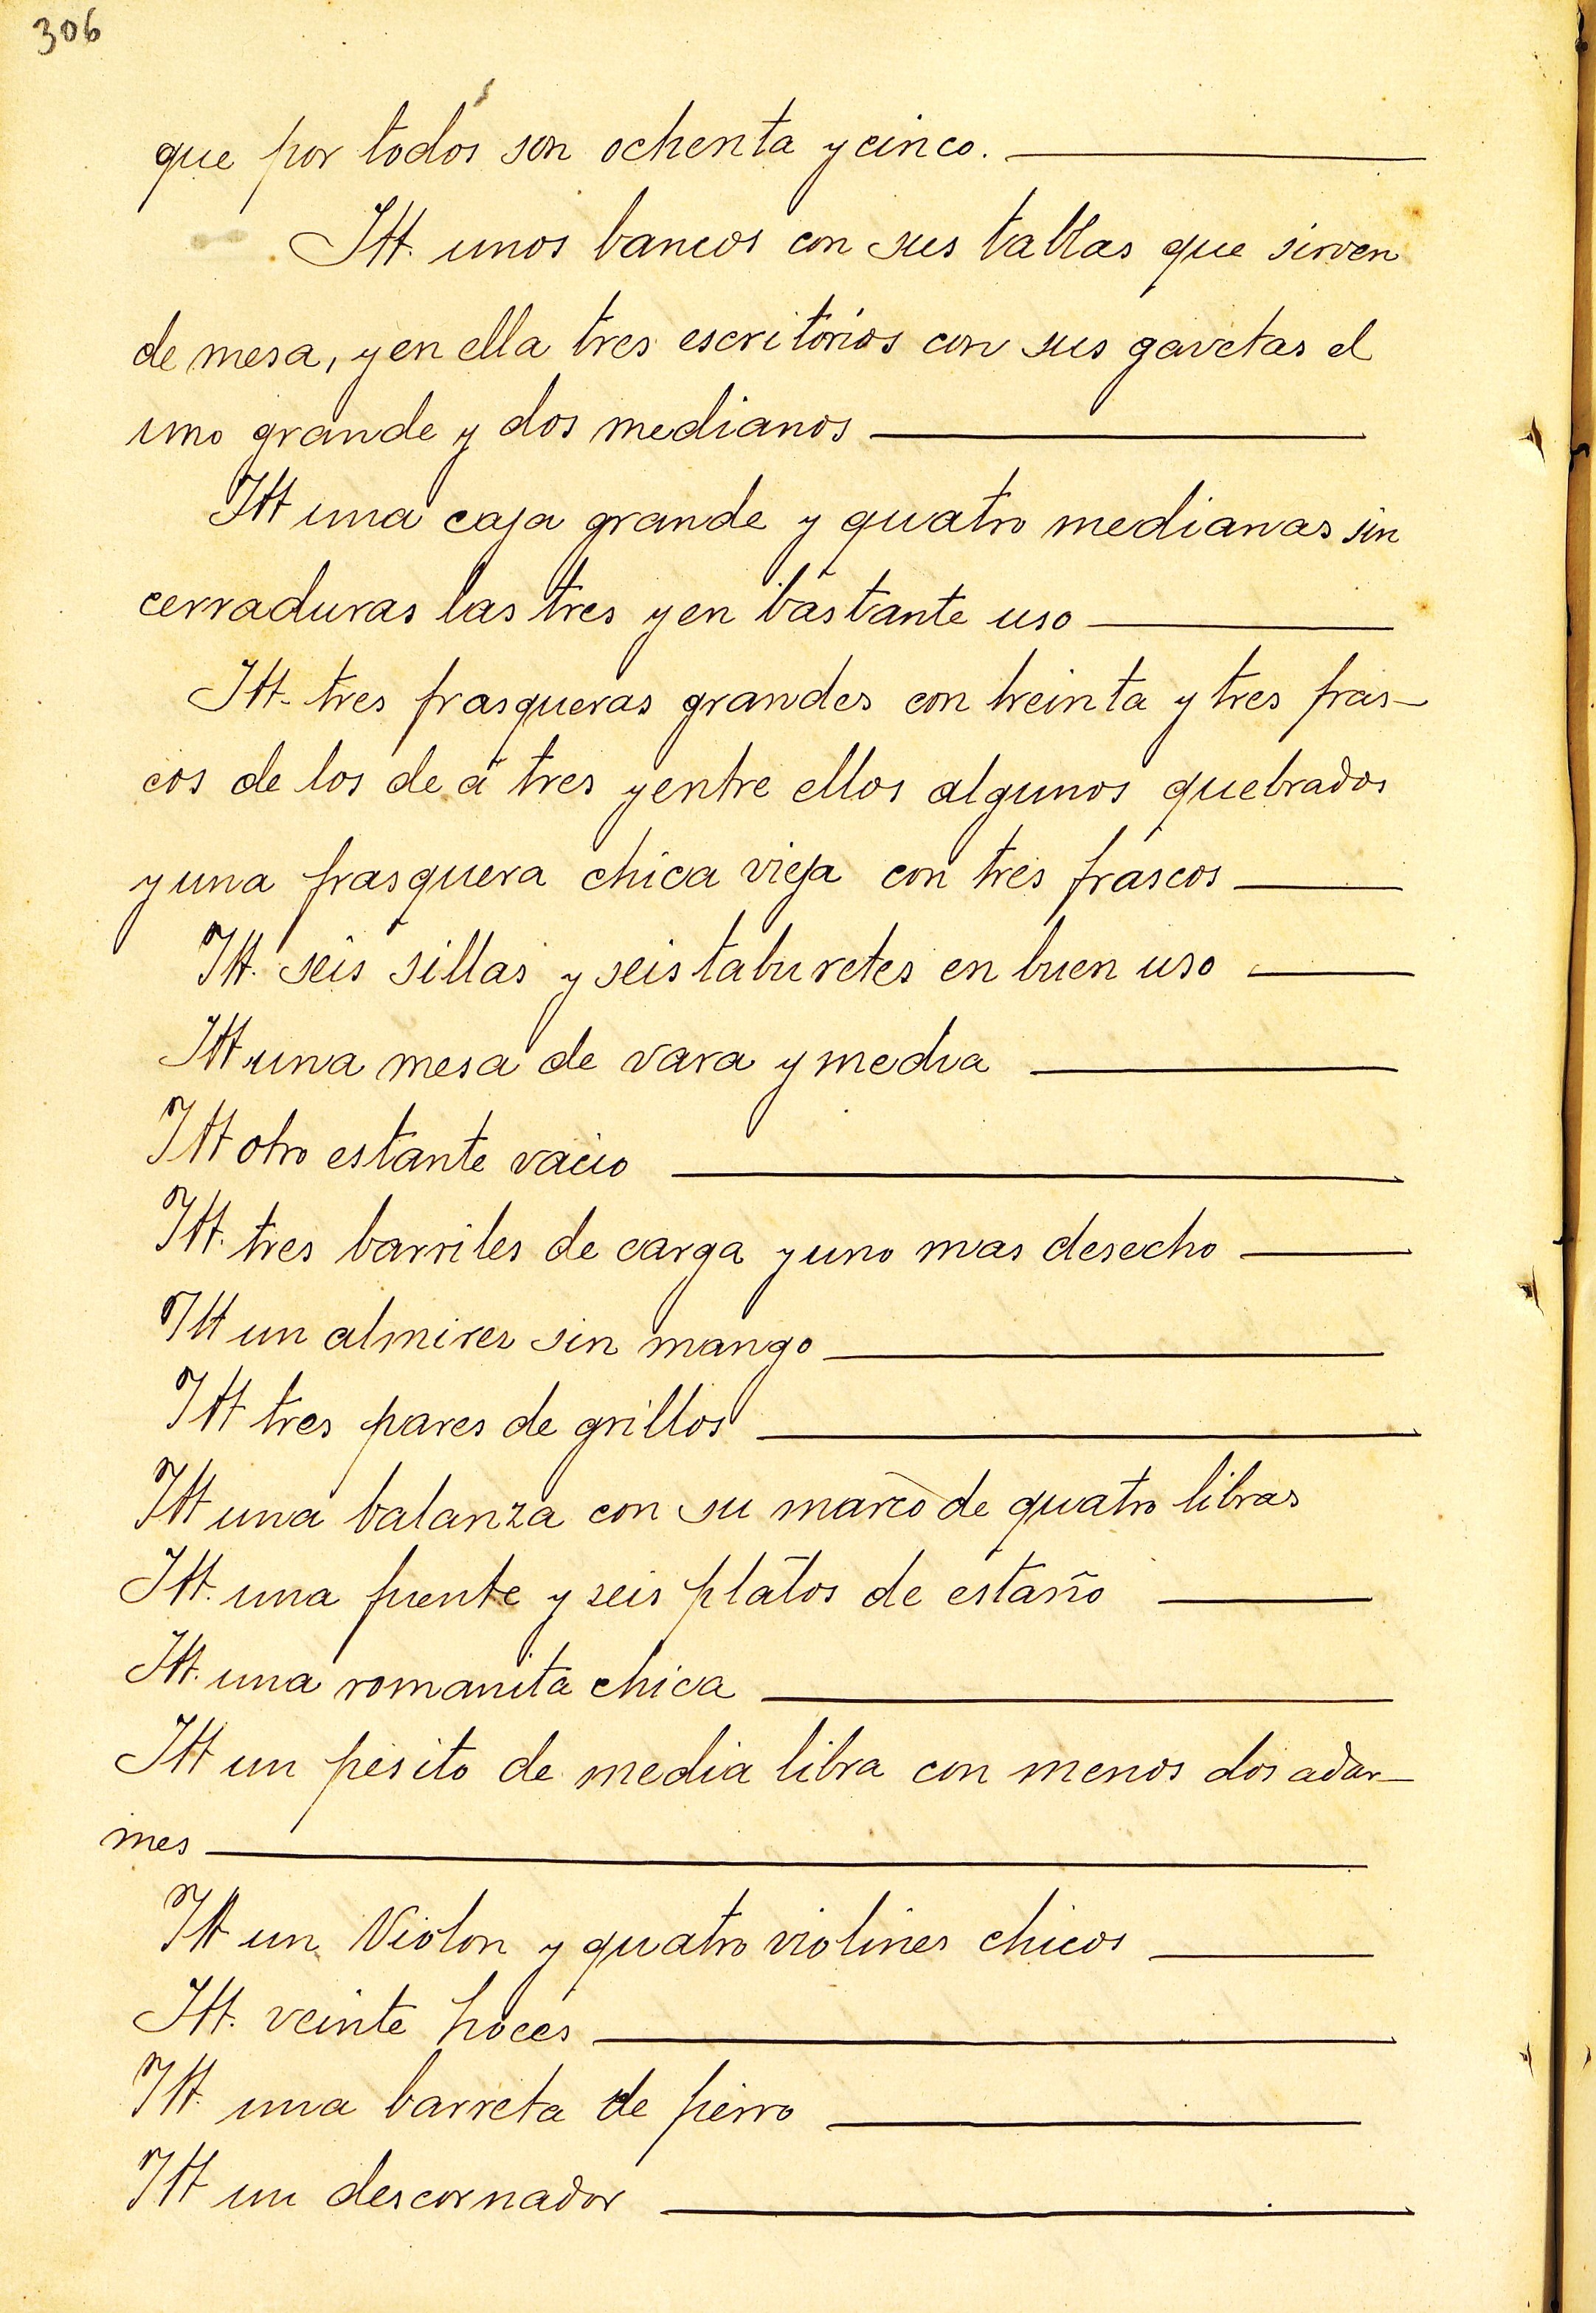 306
que por todos son ochenta y cinco.
Itt. unos bancos con sus tablas que sirven
de mesa, y en ella tres escritorios con sus gavetas el
uno grande y dos medianos
Itt una caja grande y quatro medianas sin
cerraduras las tres y en bastante uso
Itt. tres frasqueras grandes con treinta y tres fras-
cos de los de á tres y entre ellos algunos quebrados
y una frasquera chica vieja con tres frascos
Itt. seis sillas y seis taburetes en buen uso
Itt una mesa de vara y media
Itt otro estante vacio
Itt. tres barriles de carga y uno mas desecho
Itt un almirez sin mango
Itt tres pares de grillos
Itt una balanza con su marco de quatro libras
Itt. una fuente y seis platos de estaño
Itt. una romanita chica
Itt un pesito de media libra con menos dos adar-
mes
Itt un Violon y quatro violines chicos
Itt. veinte hoces
Itt. una barreta de fierro
Itt un descornador